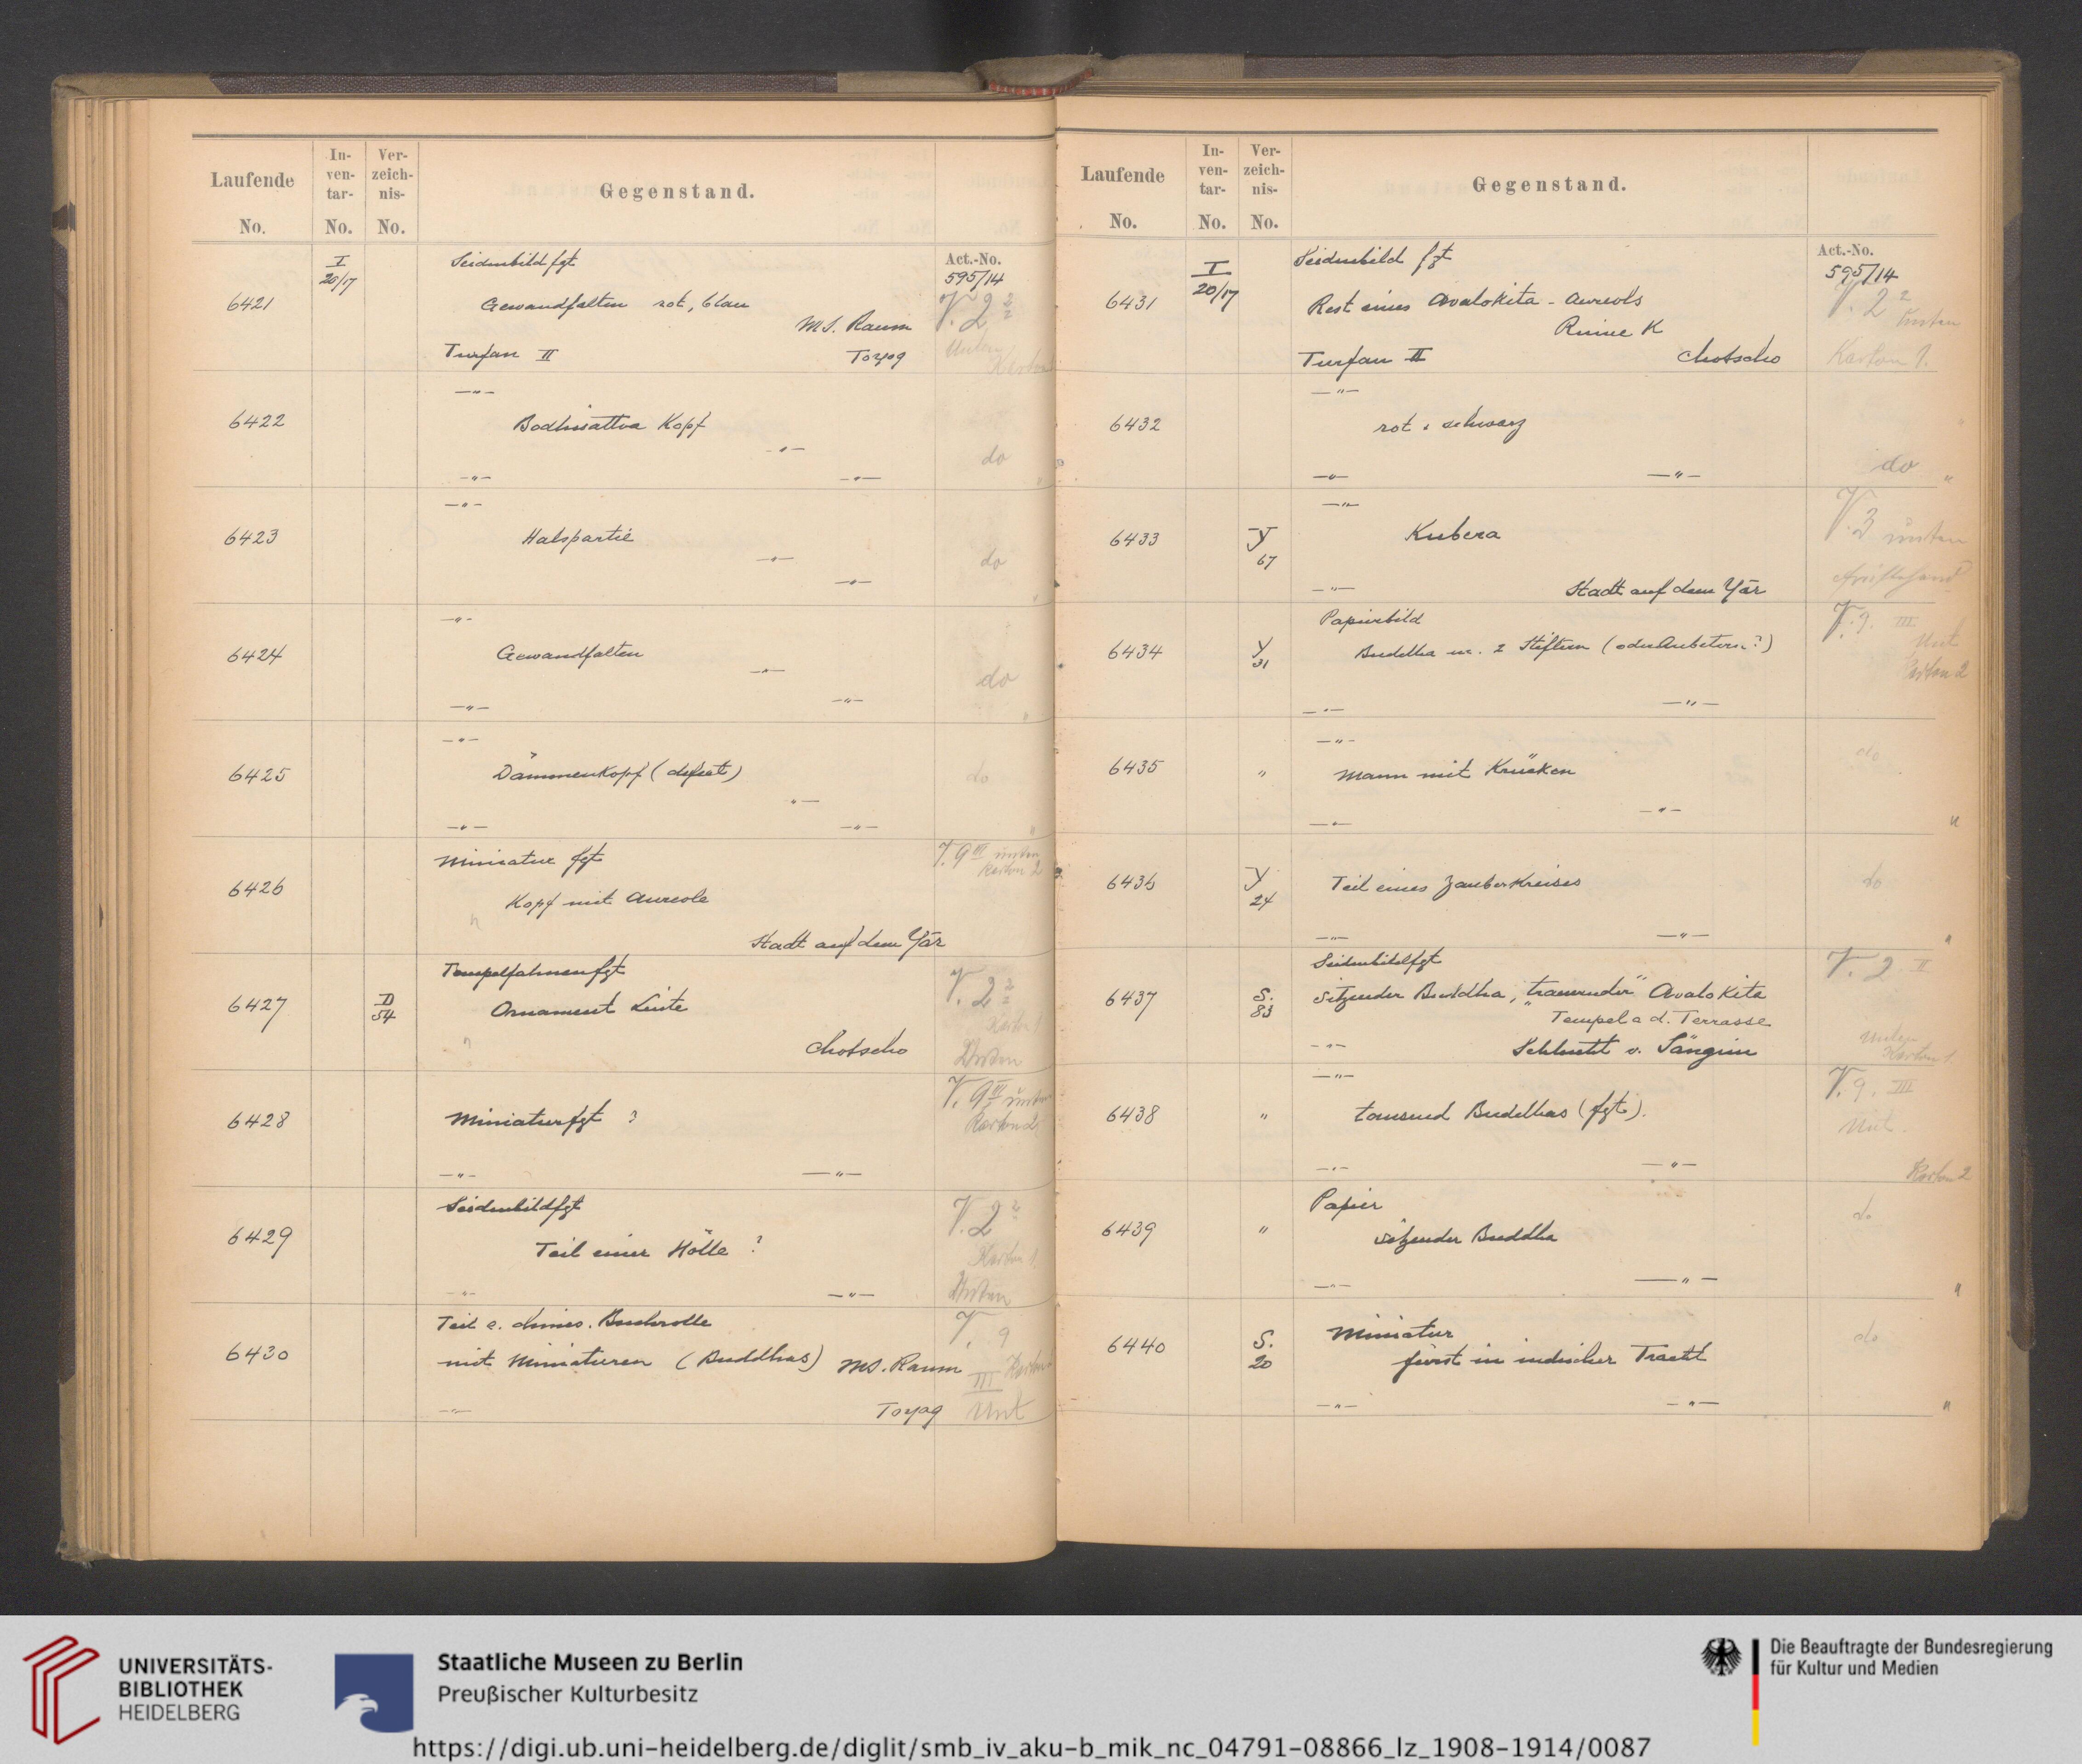 Laufende No.
In-ven-tar- No.
Ver-zeich-nis- No.
Gegenstand.
6421
I
20/17
Seidenbild fgt
Act.-No.
595/14
Gewandfalten rot, blau
V. 2 2/2
MS. Raum
Unten
Turfan II
Toyog
Karton
—"—
6422
Bodhisattva Kopf
—"—
do
—"— —"—
—"—
6423
Halspartie
—"—
do
—"—
—"—
6424
Gewandfalten
—"—
do
—"— —"—
—"—
6425
Dämmenkopf (defect)
do
"—
—"— —"—
6426
Miniatur fgt
V. 9 III unten
Karton 2
Kopf mit Aureole
Stadt auf dem Yār
6427
D
54
Tempelfahnenfgt
V. 2 2/2
Ornament Leiste
Karton 1
Chotscho
Unten
6428
V. 9 III unten
Miniaturfgt ?
Karton 2
—"— —"—
6429
Seidenbildfgt
V. 2 2
Teil einer Hölle ?
Karton 1
—"— —"—
Unten
6430
Teil e. chines. Buchrolle
V. 9
mit Miniaturen (Buddhas) MS. Raum
III Karton
—"—
Toyog
Unt
Laufende No.
In-ven-tar- No.
Ver-zeich-nis- No.
Gegenstand.
6431
I
20/17
Seidenbild fgt
Act.-No.
595/14
Rest eines Avalokita-Aureols
V. 2 2
unten
Ruine K
Turfan II
Chotscho
Karton 1.
—"—
6432
rot u schwarz
do
—"— —"— "
—"—
6433
Y
67
Kubera
V. 3 unten
—"—
Stadt auf dem Yār
6434
Y
31
Papierbild
V. 9. III
Unt
Buddha m. 2 Stiftern (oder Anbetern?)
Karton 2
—"— —"—
—"—
6435
"
Mann mit Krücken
do
—"— —"— "
6436
Y
24
Teil eines Zauberkreises
do
—"— —"— "
6437
S.
83
Seidenbildfgt
V. 2 II
sitzender Buddha, "trauernder" Avalokita
Tempel a d. Terrasse
Unten
Karton 1
—"—
Schlucht v. Sängim
—"—
6438
"
tausend Buddhas (fgt).
V. 9. III
Unt.
—"— —"—
Karton 2
6439
"
Papier
do
sitzender Buddha
—"— —"— "
6440
S.
20
Miniatur
do
Fürst in indischer Tracht
—"— —"— "
UNIVERSITÄTS-
BIBLIOTHEK
HEIDELBERG
Staatliche Museen zu Berlin
Preußischer Kulturbesitz
Die Beauftragte der Bundesregierung
für Kultur und Medien
https://digi.ub.uni-heidelberg.de/diglit/smb_iv_aku-b_mik_nc_04791-08866_lz_1908-1914/0087